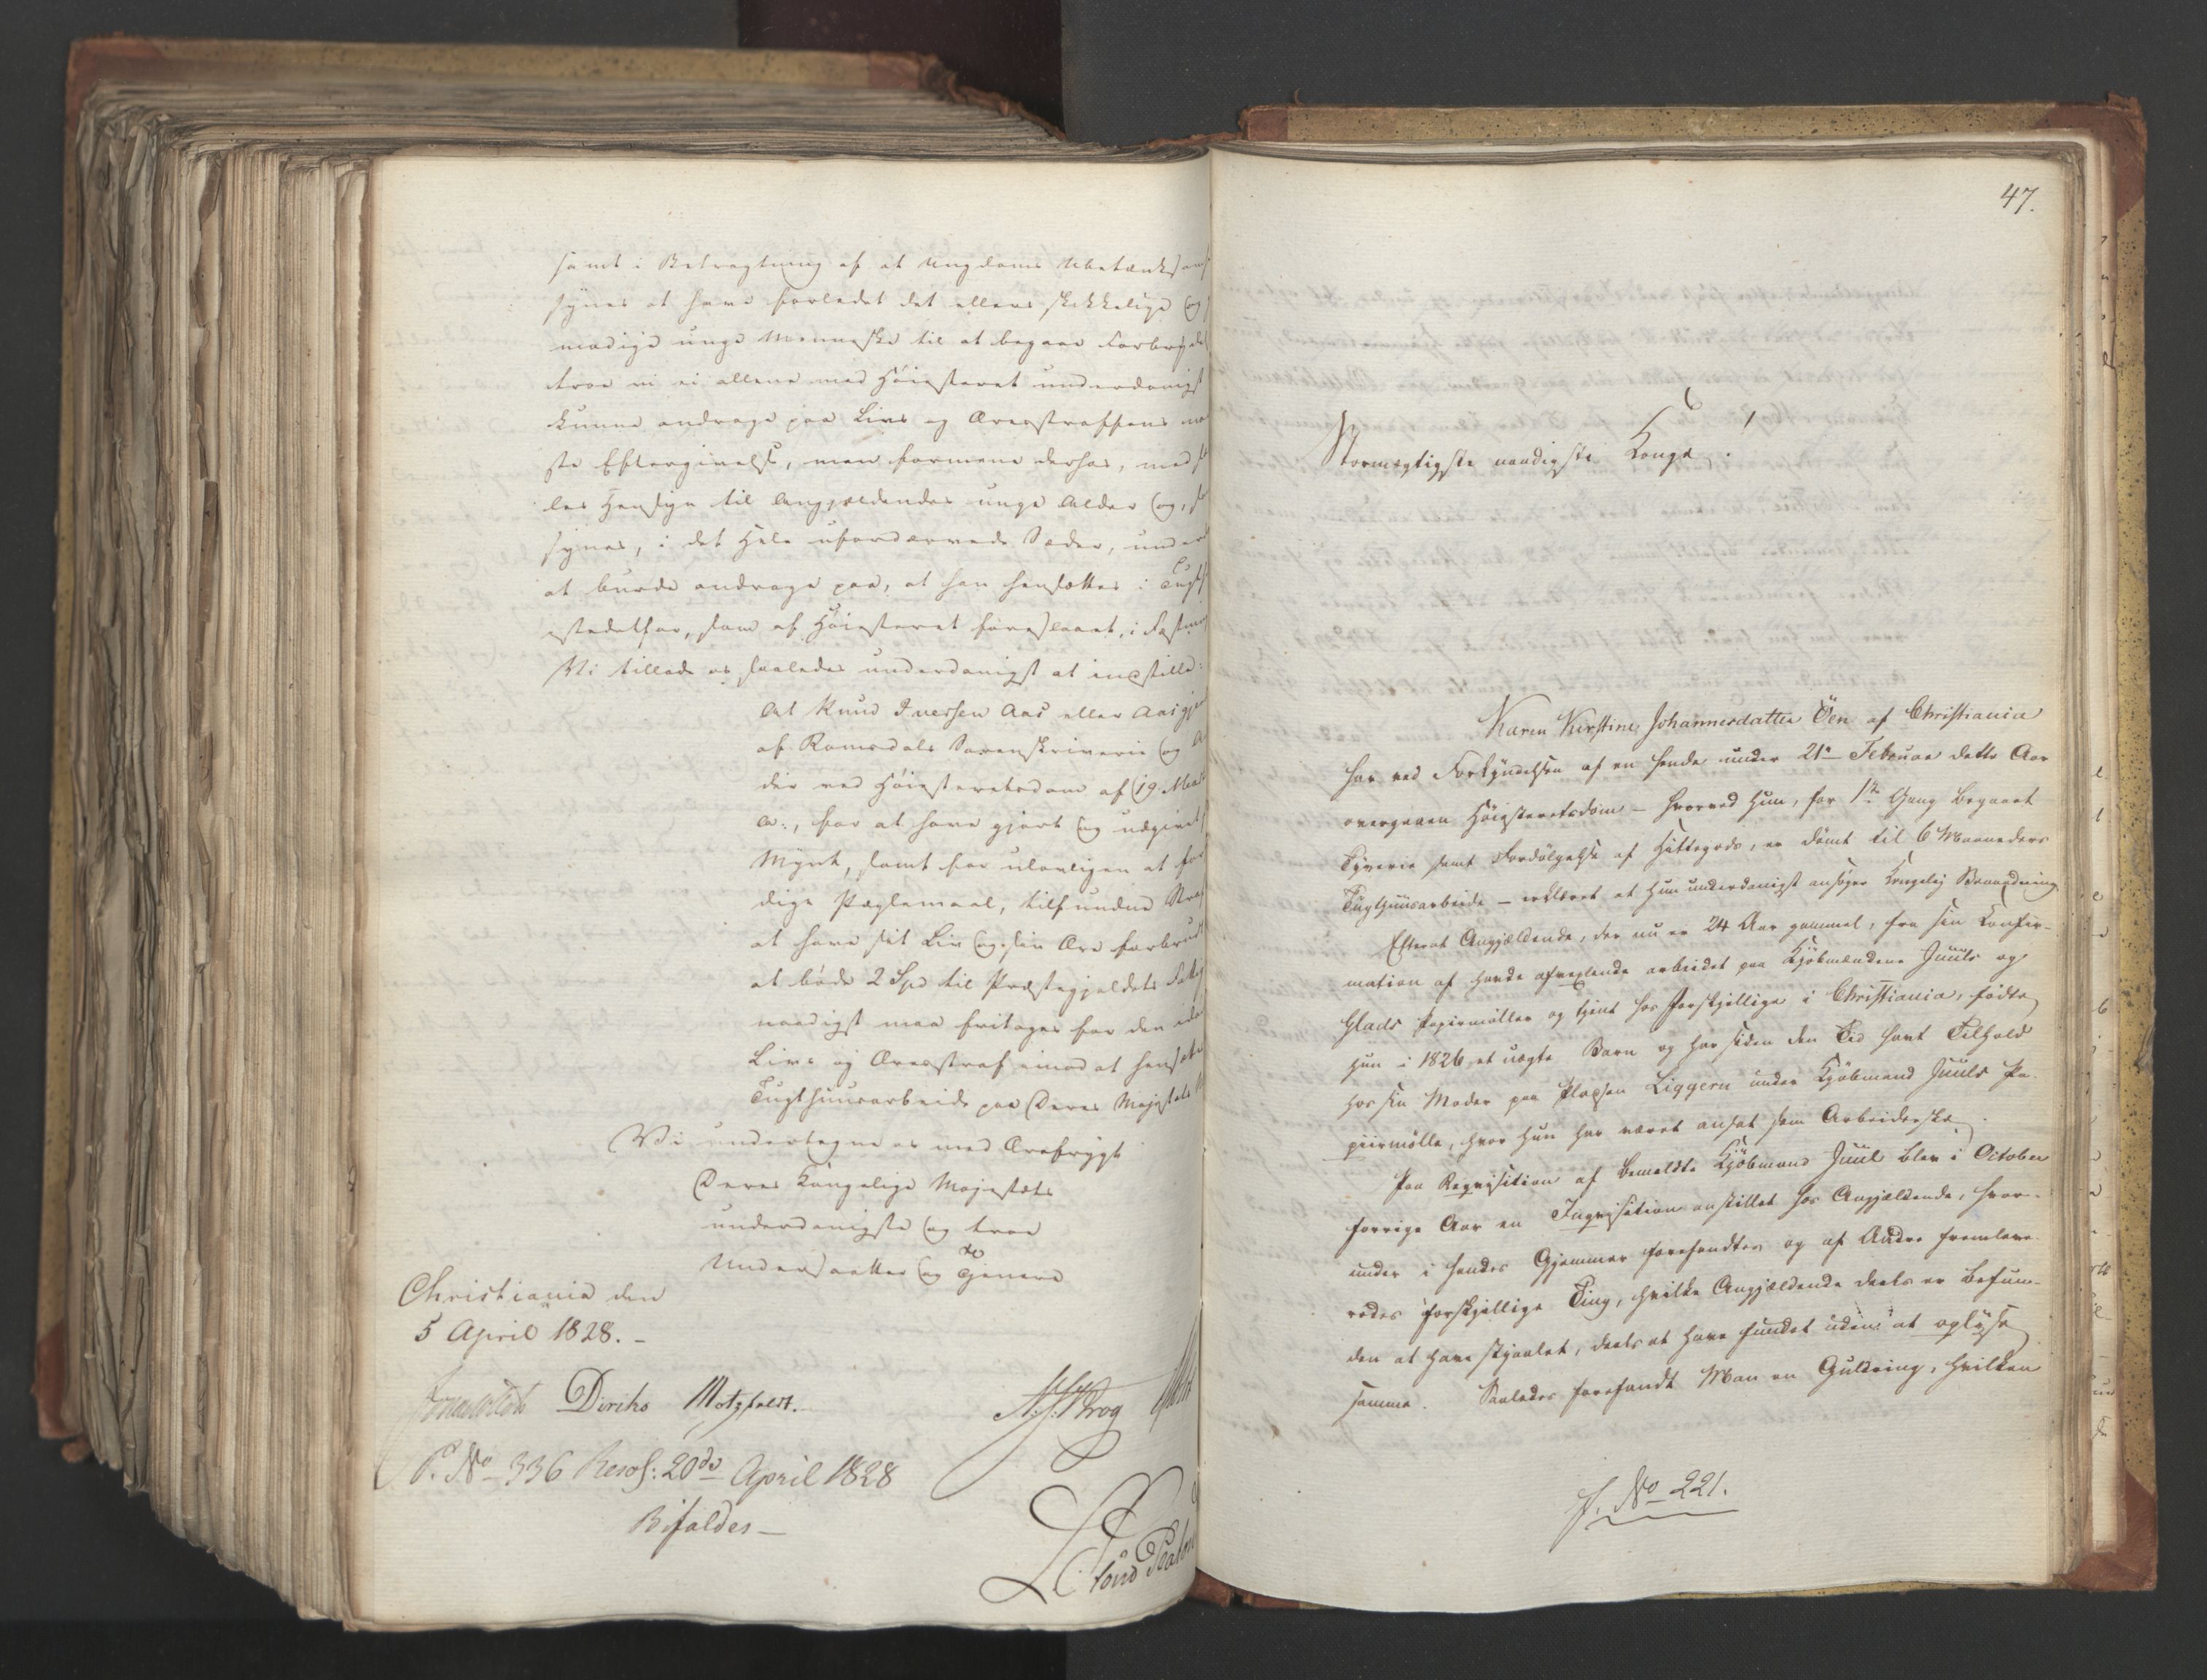 samt i Betragtning af at Ungdoms Ubetænksom
synes at have forledet det ellers skikkelige og
modige unge Menneske til at begaae Forbrydel
troe vi ei allene med Höiesteret underdanigst
kunne andrage paa Livs og Æresstraffens
ste Eftergivelse, men formene derhos, med
les Hensyn til Angjældendes unge Alder og,
synes, i det Hele ufordærvede Sæder, under
at burde andrage paa, at han hensættes i Tugth
istedetfor, som af Höiesteret foreslaaet, i Fæstning
Vi tillade os saaledes underdanigst at indstille:
At Knud Iversen Aas eller Aasgjer
af Romsdals Sorenskriverie og
der ved Höiesteretsdom af 19 Marts
a:, for at have gjort og udgivet
Mynt, samt for ulovligen at for
dige Pæglemaal, tilfunden Straf
at have sit Liv og sin Ære forbrudt
at böde 2 Spd til Præstegjeldets Fattig
naadigst maa fritages for den
Livs og Æresstraf imod at hensættes
Tugthuusarbeide paa Deres Majestæts
Vi undertegne os med Ærefrygt
Deres Kongelige Majestæts
underdanigste og troe
Undersaatter og Tjenere
Christiania den
5 April 1828. -
Diriks Motzfeldt.
P. No 336 Resol: 20de April 1828
Bifaldes -
47.
Stormægtigste naadigste Konge!
Karen Kirstine Johannesdatter Öen af Christiania
har ved Forkyndelsen af en hende under 21de Februar dette Aar
overgaaen Höiesteretsdom - hvorved hun, for 1ste Gang begaaet
Tyverie samt Fordölgelse af Hittegods, er dömt til 6 Maaneders
Tugthuusarbeide - erklæret at hun underdanigst ansöger Kongelig Benaadning
Efterat Angjældende, der nu er 24 Aar gammel, fra sin Confir-
mation af havde afvexlende arbeidet paa Kjöbmændene Juuls og
Glads Papirmöller og tjent hos forskjellige i Christiania, födte
hun i 1826 et uægte Barn og har siden den Tid havt Tilhold
hos sin Moder paa Pladsen Liggern under Kjöbmand Juuls Pa-
piirmölle, hvor hun har været ansat som Arbeiderske.
Paa Reqvisition af bemeldte Kjöbmand Juul blev i October
forrige Aar en Inqvisition anstillet hos Angjældende, hvor-
under i hendes Gjemmer forefandtes og af Andre fremleve-
redes forskjellige Ting, hvilke Angjældende deels er befun-
den at have stjaalet, deels at have fundet uden at oplyse
samme. Saaledes forefandt Man en Guldring, hvilken
J. No 221.